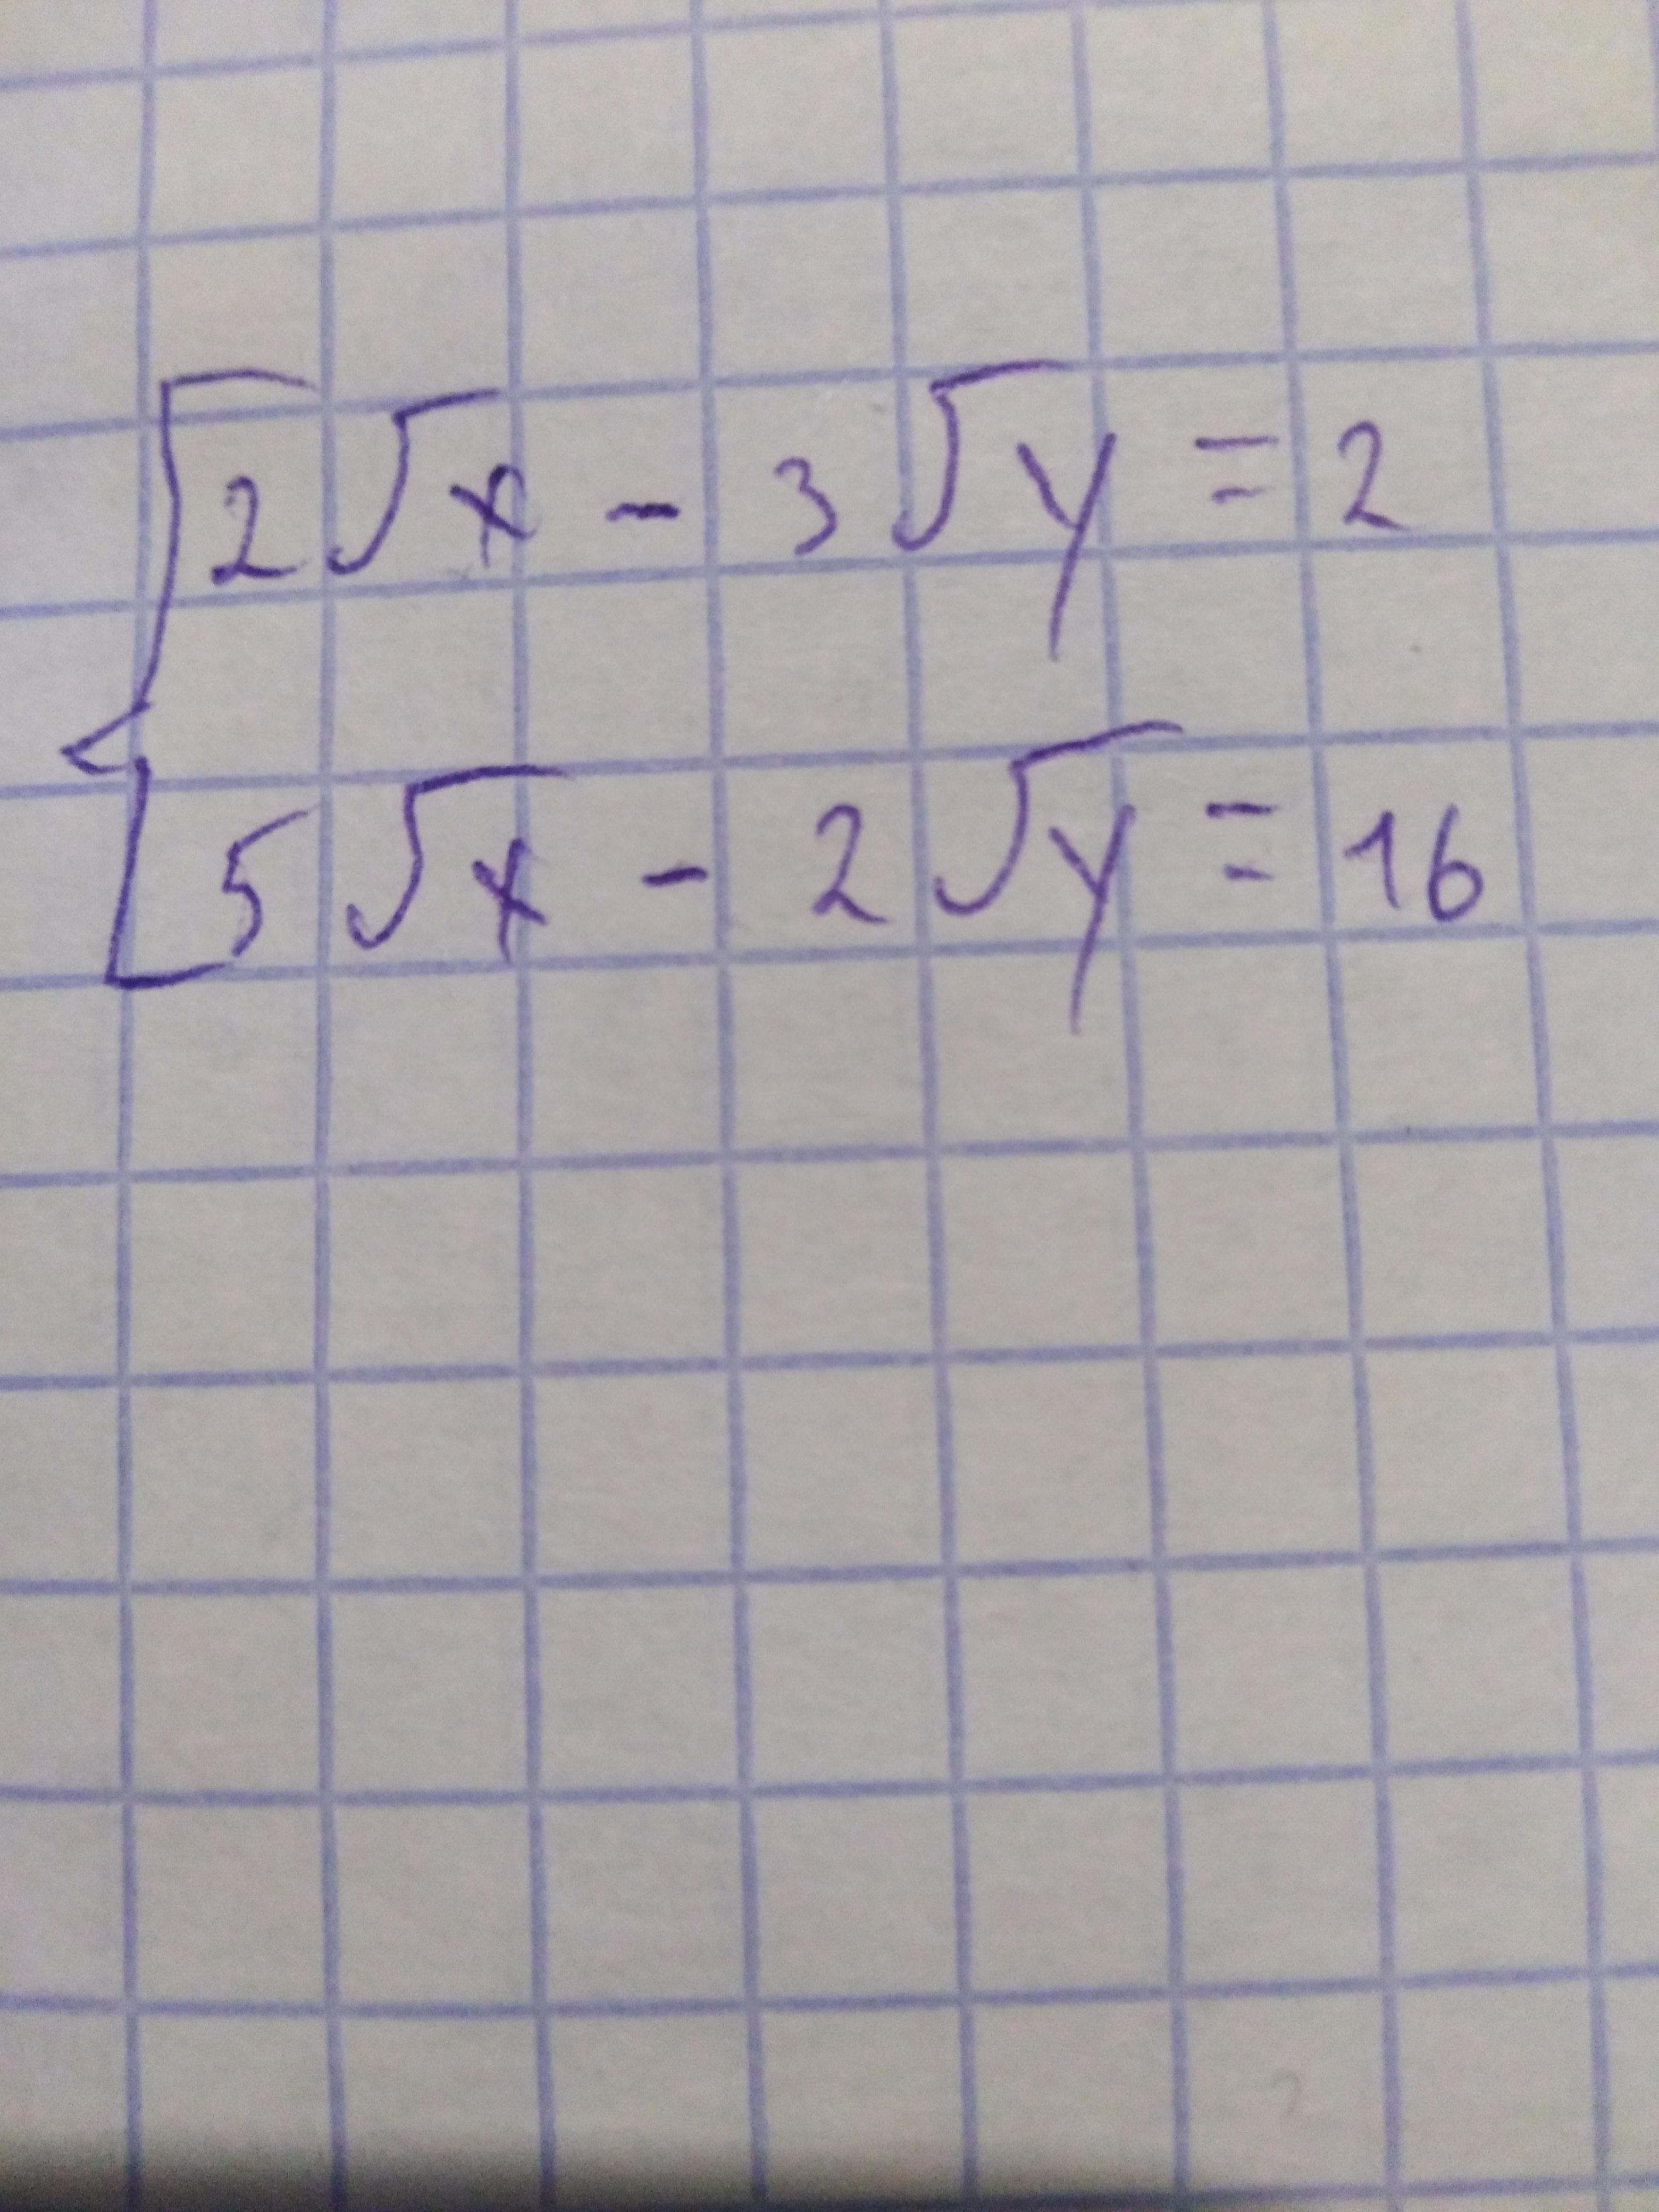 2√x - 3√y = 2
5√x - 2√y = 16